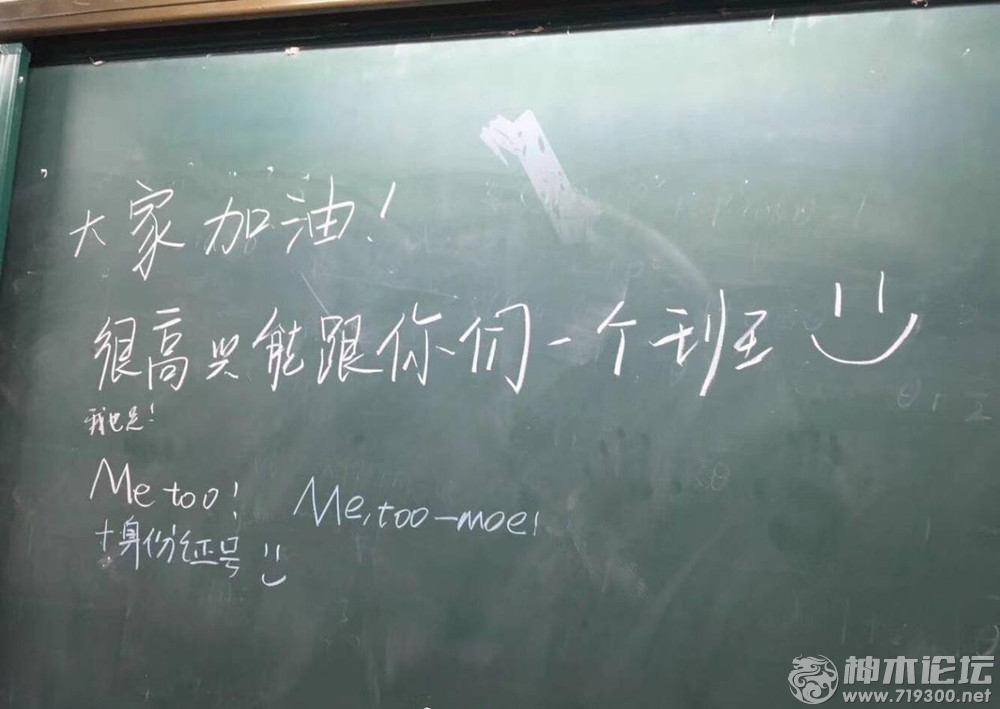 大家加油！
很高兴能跟你们一个班
我也是！
Me too!
Me,too-moe!
+身份证号
神木论坛
www.719300.net